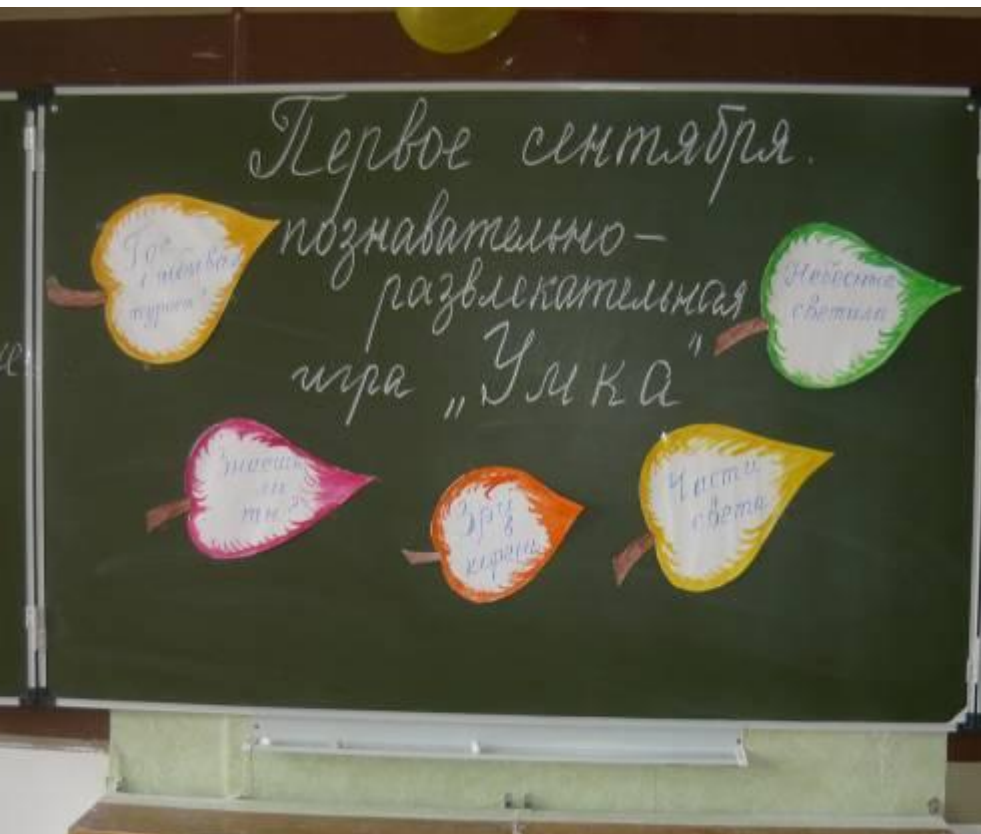 Первое сентября.
познавательно-
развлекательная
игра „Умка"
Небесные
светила
ли
ты?
Зри
в
корень
Части
света